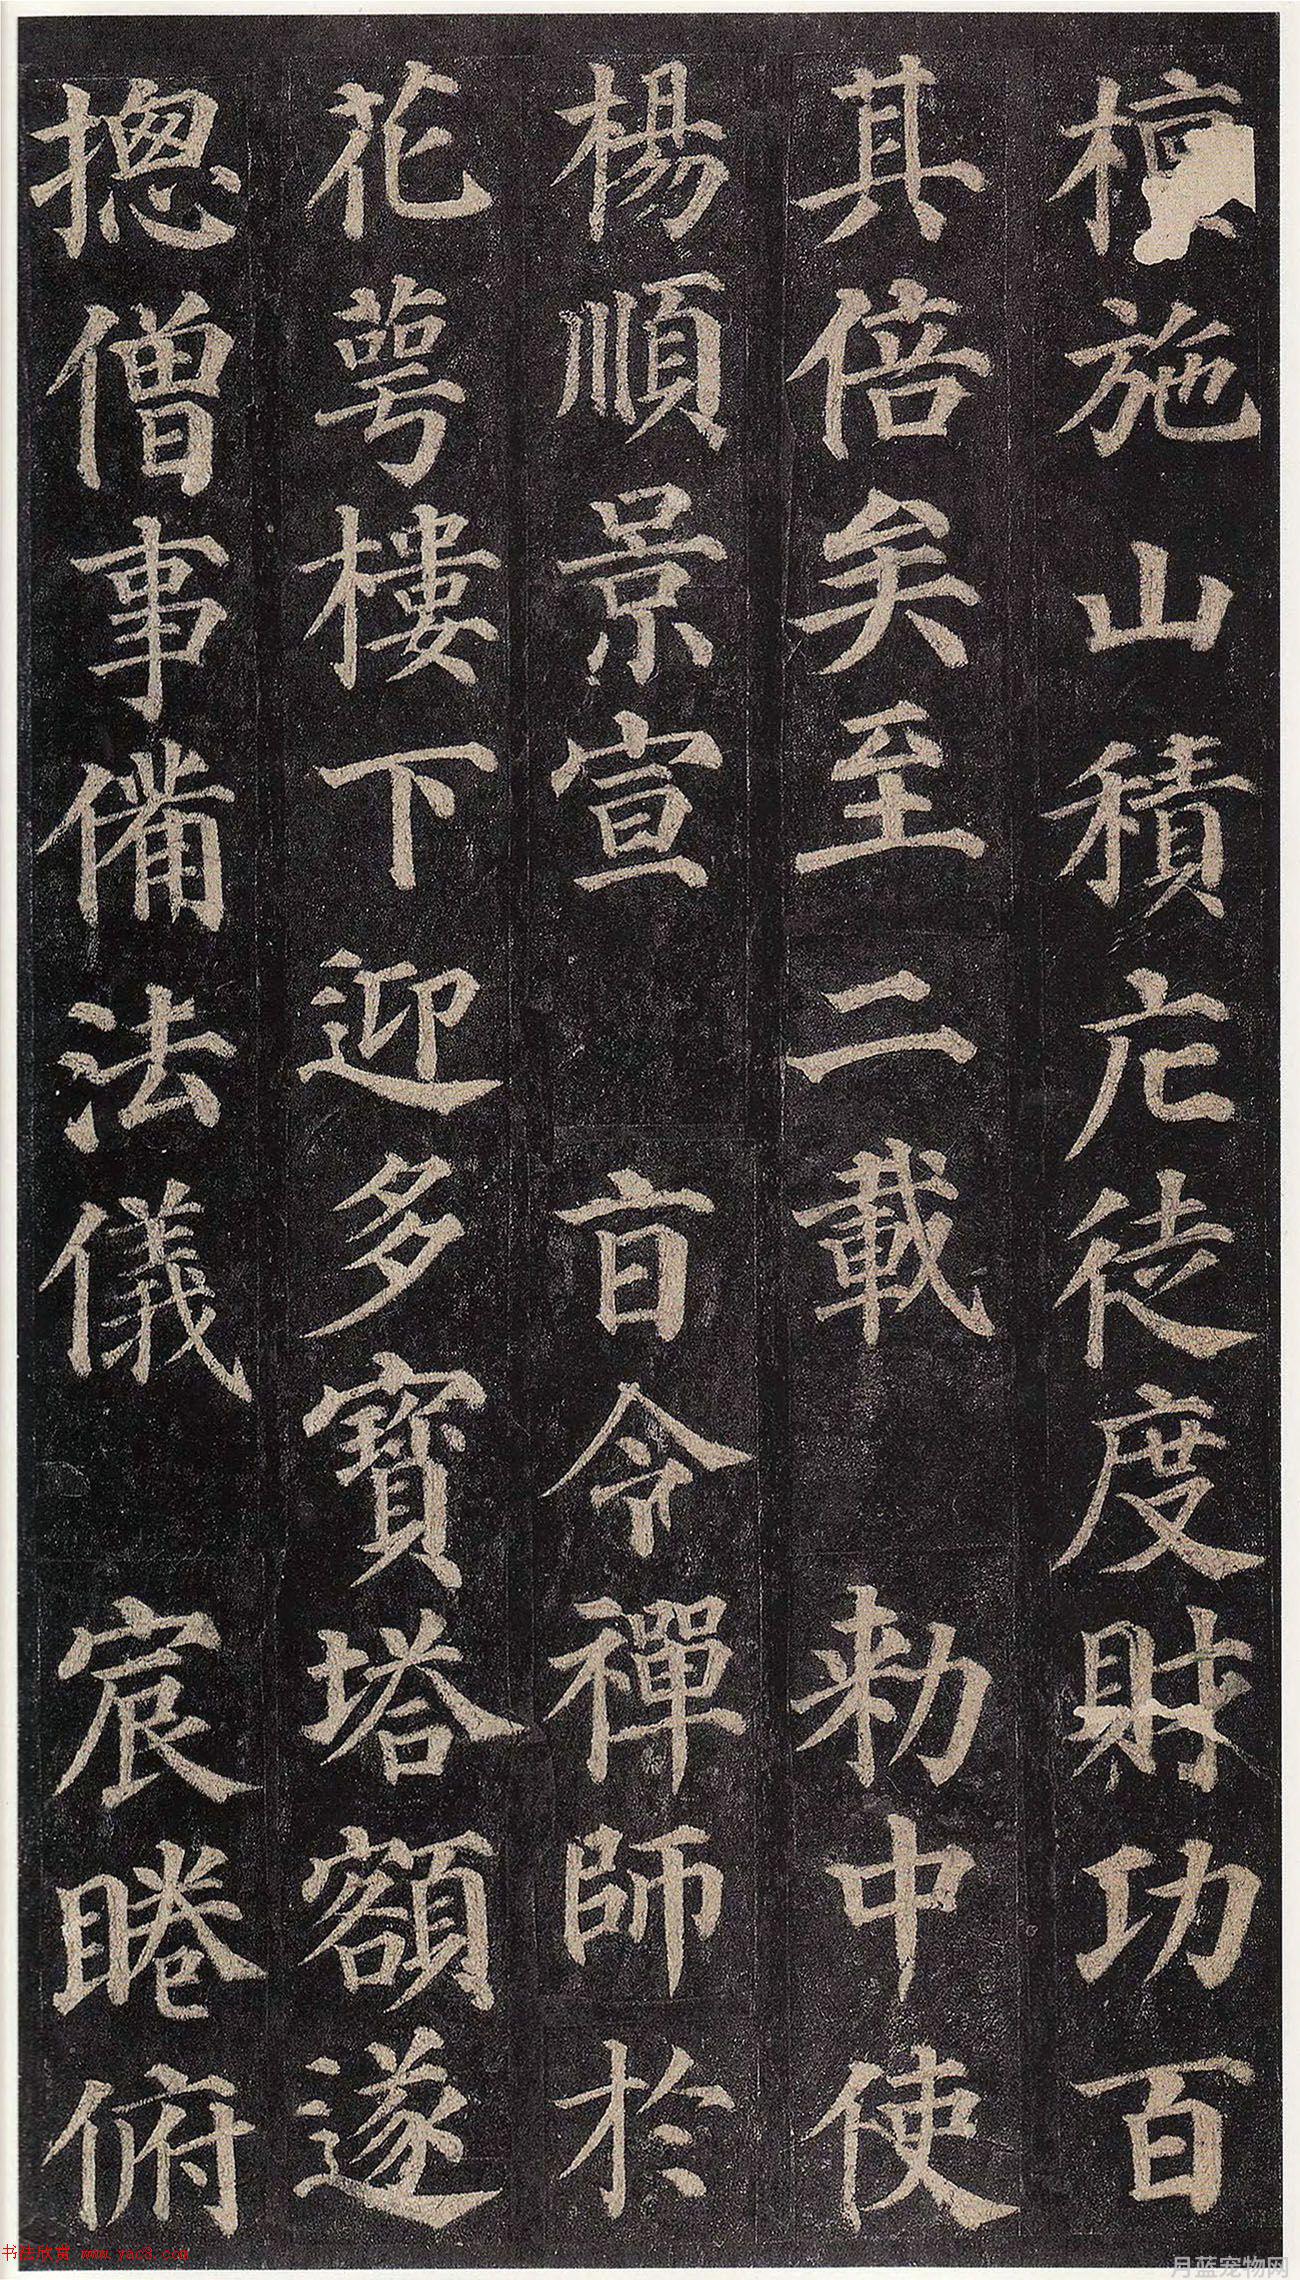 檀施山積庀徒度財功百
其倍矣至二載 勑中使
楊順景宣 㫖令禪師於
花萼樓下迎多寶塔額遂
揔僧事備法儀 宸睠俯
书法欣赏 www.yac3.com
月蓝宠物网